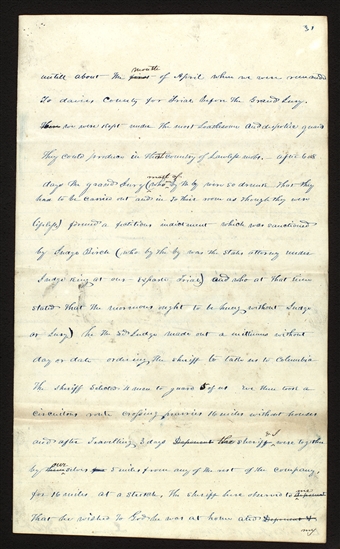 31
untill about the first month of April when we were remanded
To davies County for Trial Before the Grand Jury.
We were kept under the most Loathsome and despotic guard
they could produce in that Country of Lawless mobs. after 6 or 8
days the grand Jury (most of who by th by were so drunk that they
has to be carried out and in to their room as though they were
lifeless) formed a fictitious indictment which was sanctioned
by Judge Birch (who by the by was the States attorney under
Judge King at our exparte Trial) and who at that time
stated that the mormons ought to be hung without Judge
or Jury) he the Sd. Judge made out a mittimus without
day or date ordering the sheriff to take us to Columbia
The sheriff Selected 4 men to guard 5 of us we then took a
circuitous route crossing prairies 16 miles without houses
and after Travelling 3 days Deponent the sheriff & I were together
by ourselves 5 miles from any of the rest of the company,
for 16 miles at a stretch. The sheriff here observed to me Deponent
that he wished to God he was at home and
my